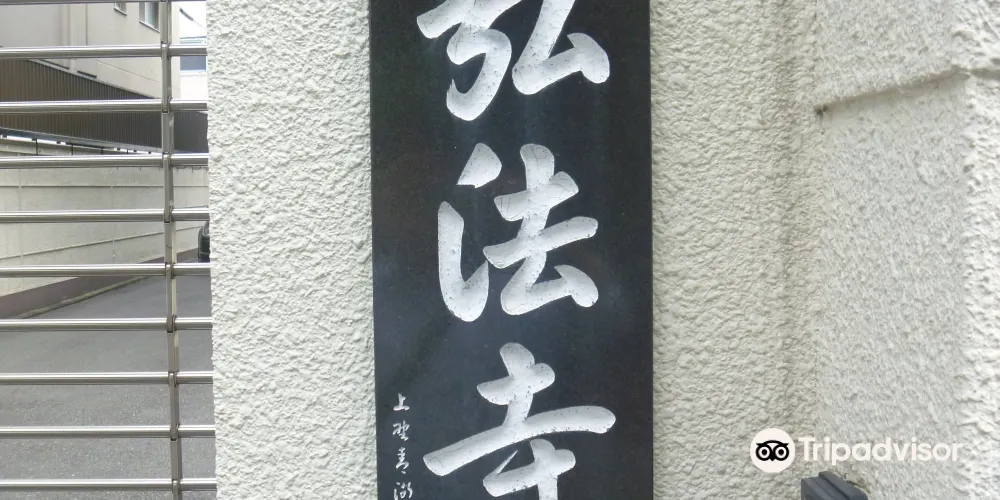 弘法寺
上野青湖
Tripadvisor